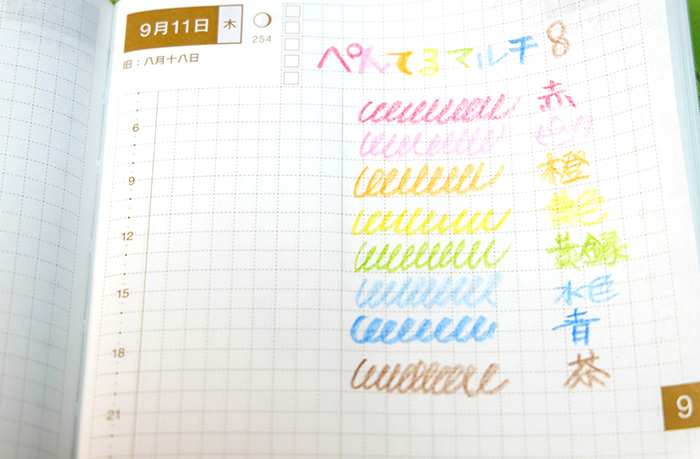 9月11日 木
254
旧:八月十八日
ぺんてるマルチ8
赤
橙
6
9
黄色
黄緑
12
水色
15
青
18
茶
21
9